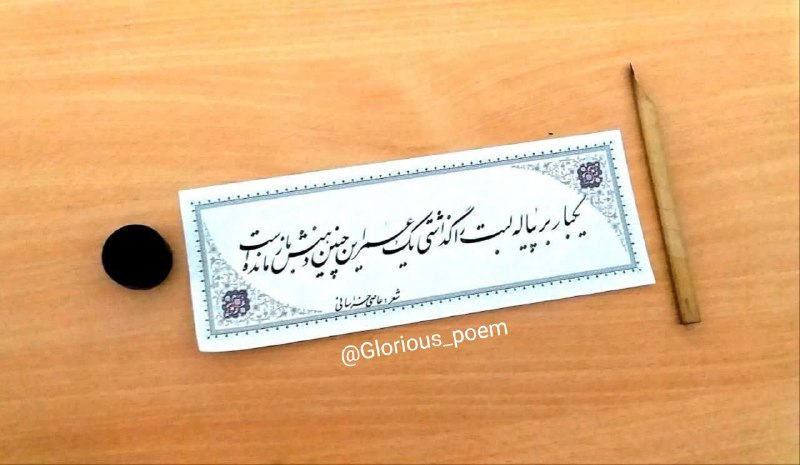 یکبار بر پیاله لبت را گذاشتی یک عمر این چنین دهنش باز مانده است
شعر: عاصی خراسانی
@Glorious_poem